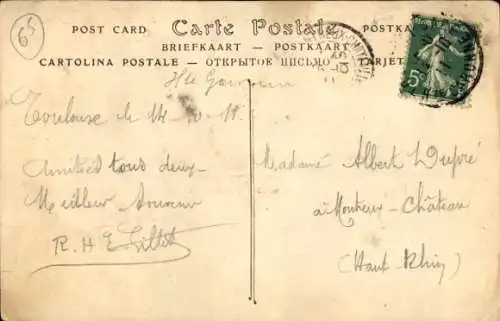 65
POST CARD Carte Postale POSTKA
BRIEFKAART — POSTKAART
CARTOLINA POSTALE — ОТКРЫТОЕ ПИСЬМО — TARJET
5c
Hte Garonne
Toulouse le 14
Amitiés tous deux-
Meilleur Souvenir
R. H E
Madame Albert Dupré
à Montreux-Château
(Haut Rhin)